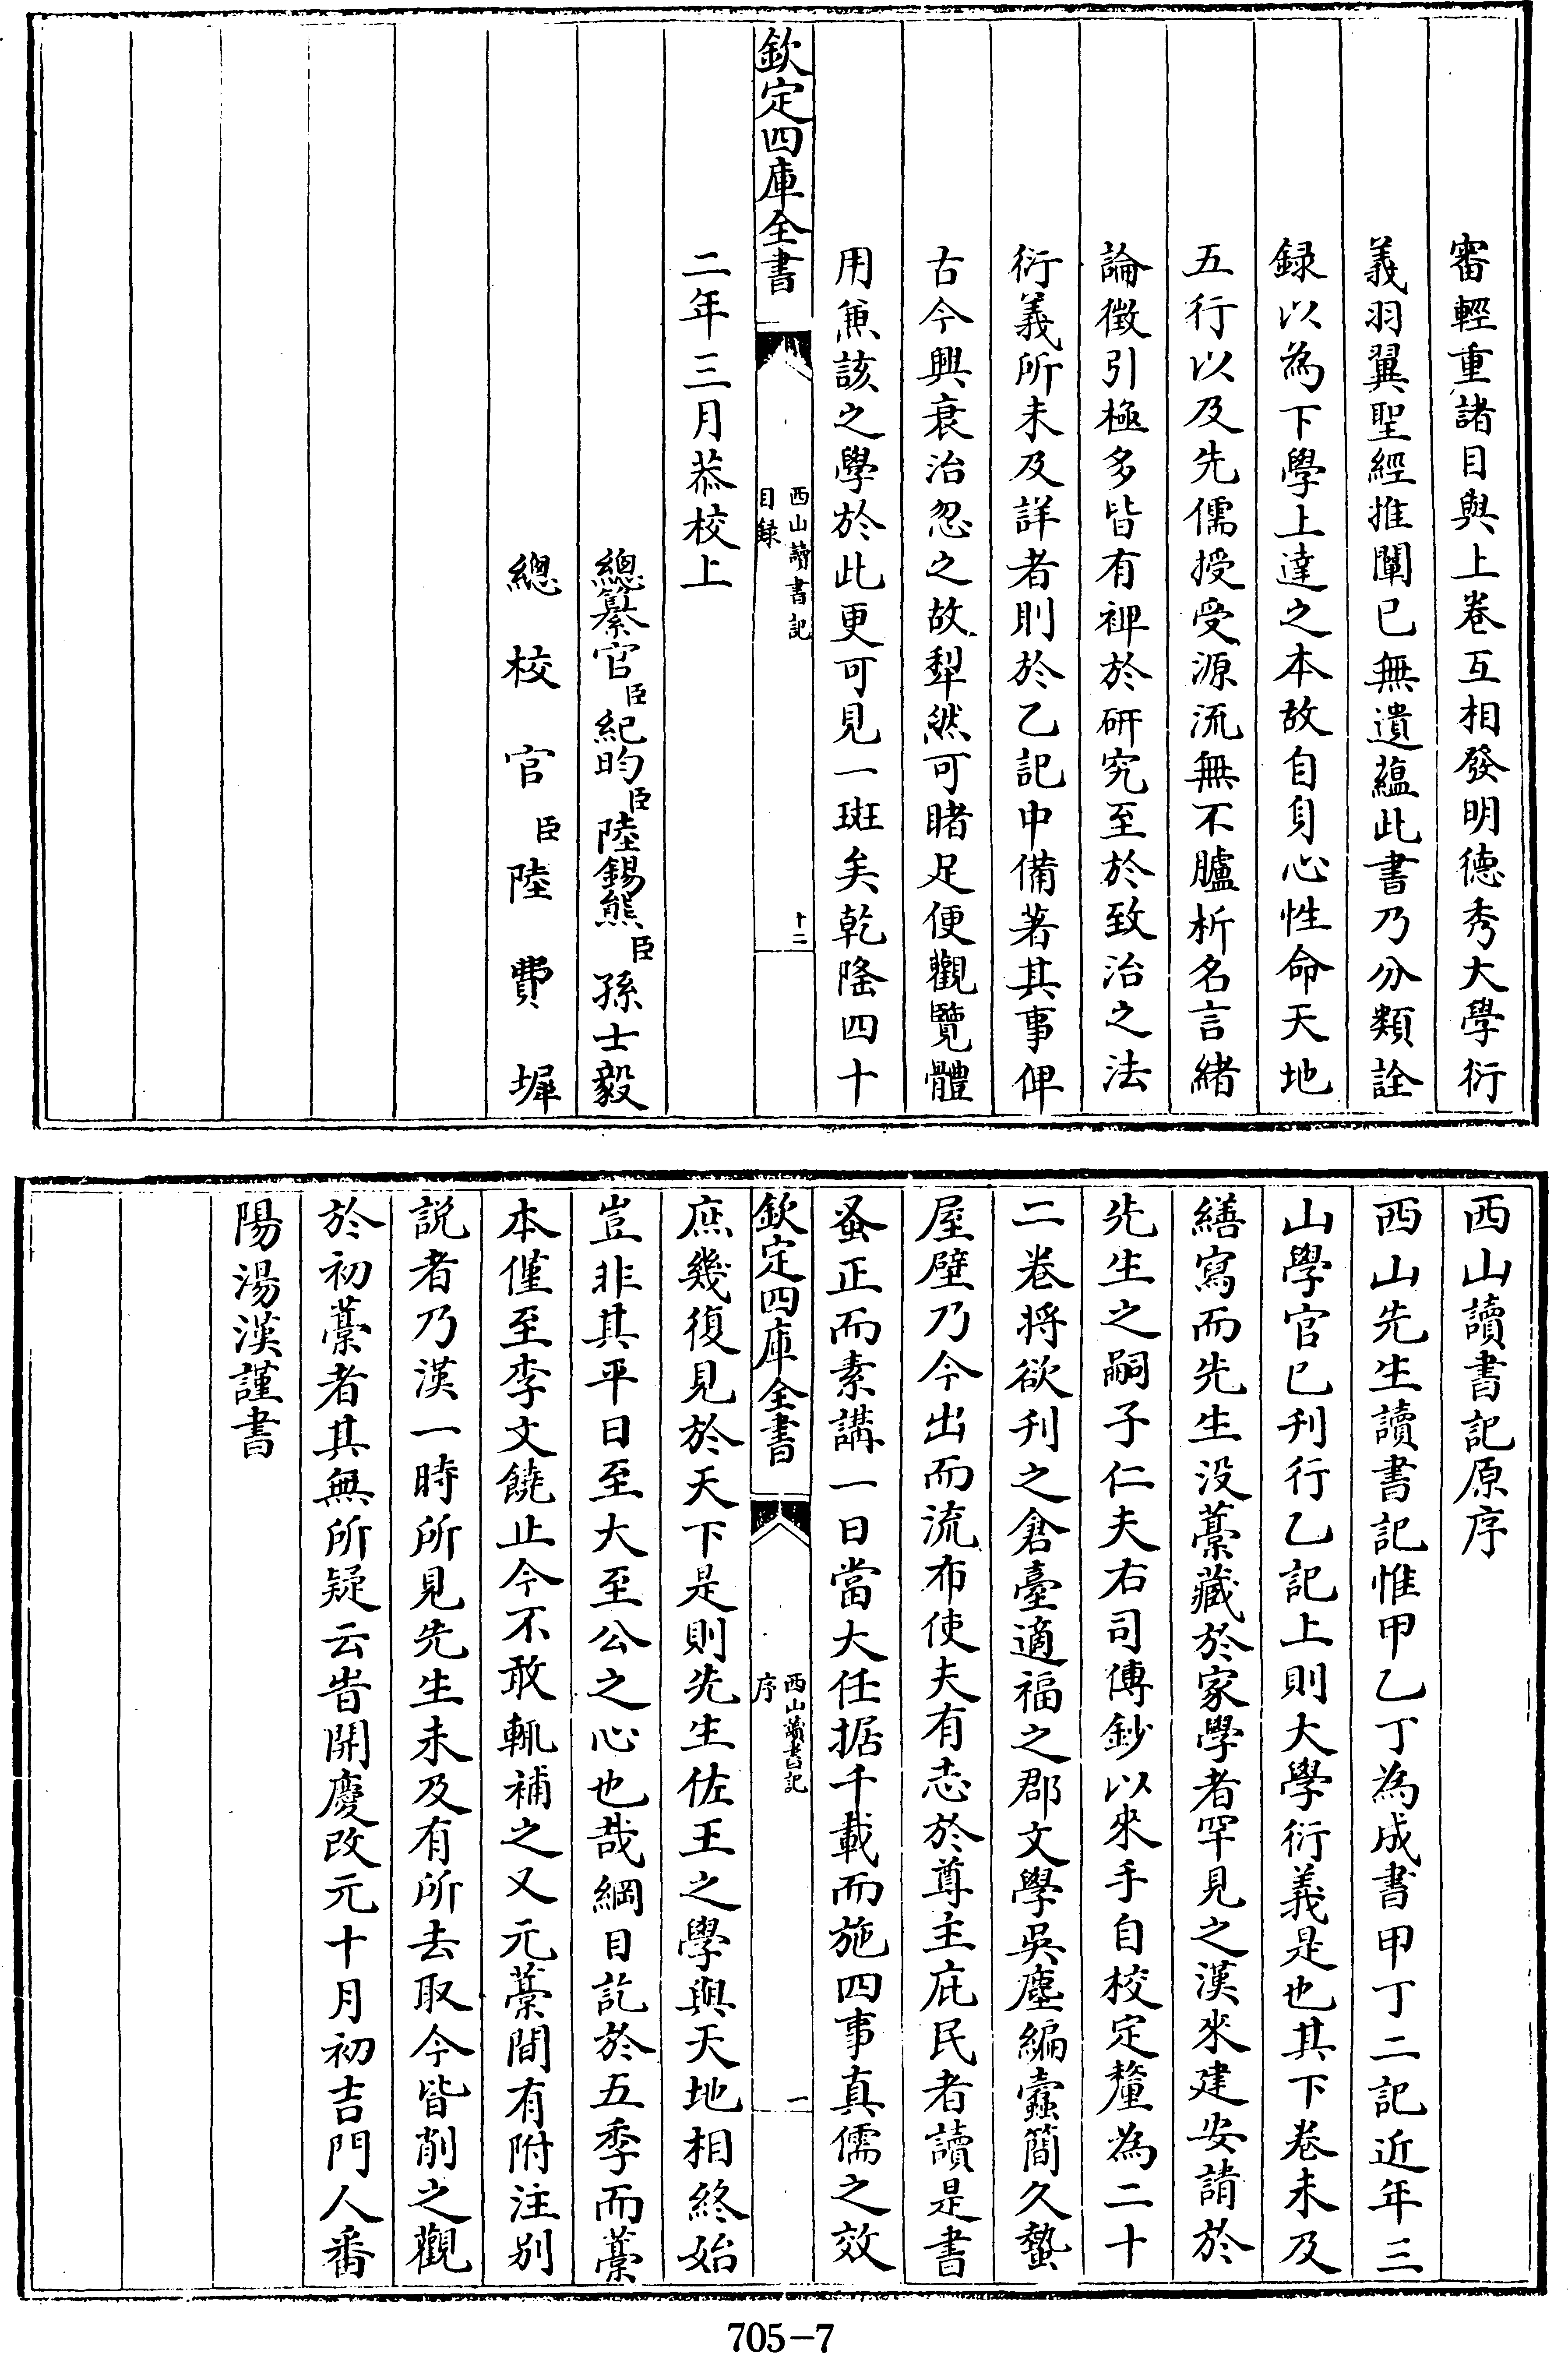 審輕重諸目與上卷互相發明德秀大學衍
義羽翼聖經推闡已無遺蘊此書乃分類詮
録以為下學上達之本故自身心性命天地
五行以及先儒授受源流無不臚析名言緒
論徵引極多皆有裨於研究至於致治之法
衍義所未及詳者則於乙記中備著其事俾
古今興衰治忽之故犂然可睹足便觀覽體
用兼該之學於此更可見一斑矣乾隆四十
欽定四庫全書
西山讀書記
目録
十二
二年三月恭校上
總纂官臣紀昀臣陸錫熊臣孫士毅
總校官臣陸費墀
西山讀書記原序
西山先生讀書記惟甲乙丁為成書甲丁二記近年三
山學官已刊行乙記上則大學衍義是也其下卷未及
繕寫而先生没藁藏於家學者罕見之漢來建安請於
先生之嗣子仁夫右司傳鈔以來手自校定釐為二十
二卷将欲刊之倉臺適福之郡文學吳塵編蠹簡久蟄
屋壁乃今出而流布使夫有志於尊主庇民者讀是書
蚤正而素講一日當大任据千載而施四事真儒之效
欽定四庫全書
西山讀書記
序
一
庶幾復見於天下是則先生佐王之學與天地相終始
豈非其平日至大至公之心也哉綱目訖於五季而藁
本僅至李文饒止今不敢輒補之又元藁間有附注别
説者乃漢一時所見先生未及有所去取今皆削之觀
於初藁者其無所疑云旹開慶改元十月初吉門人番
陽湯漢謹書
705-7